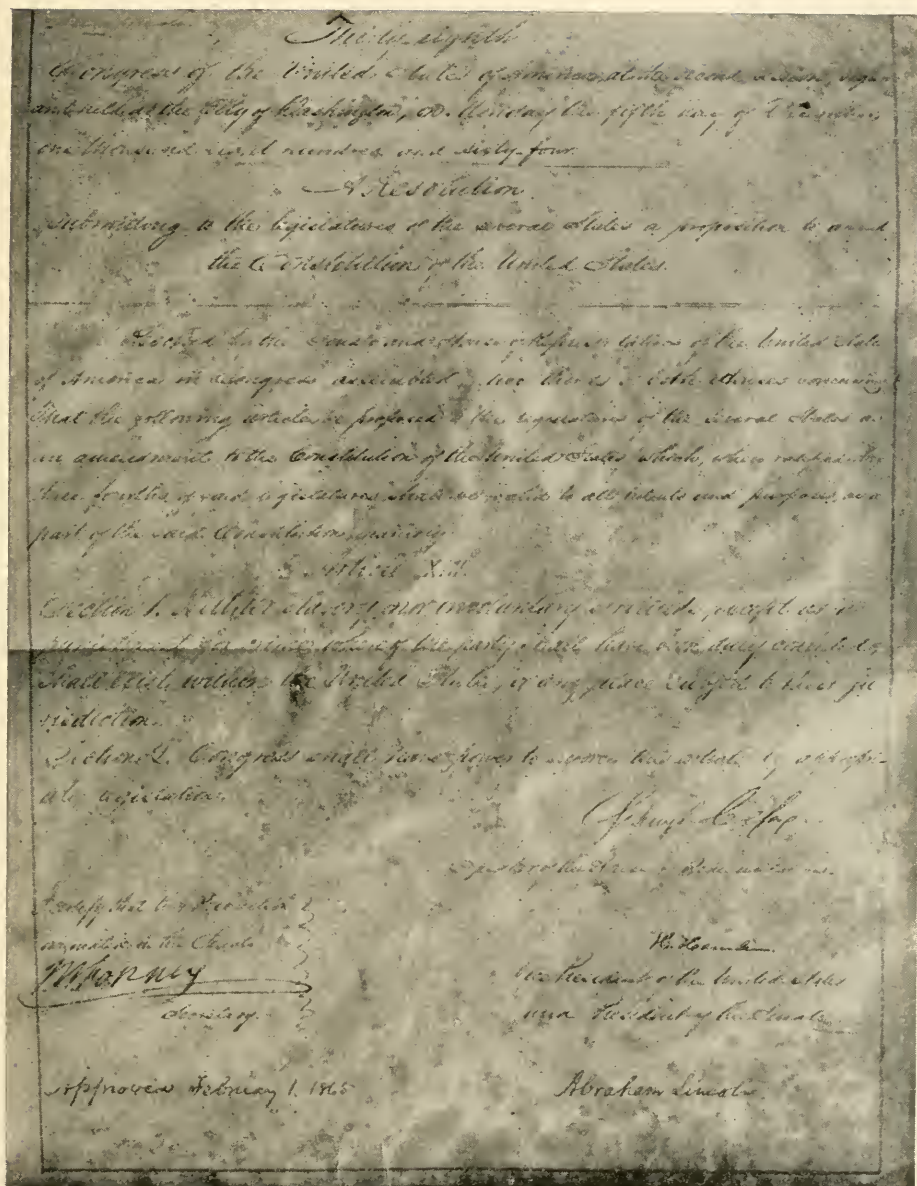 Thirty-eighth
Congress of the United States of America, at the second session, begun
and held at the City of Washington, on Monday the fifth day of December,
one thousand eight hundred and sixty-four.
A Resolution
Submitting to the legislatures of the several States a proposition to amend
the Constitution of the United States.
Resolved by the Senate and House of Representatives of the United States
of America in Congress assembled, two thirds of both Houses concurring,
That the following article be proposed to the legislatures of the several States as
an amendment to the Constitution of the United States, which, when ratified by
three fourths of said legislatures, shall be valid to all intents and purposes, as a
part of the said Constitution, namely:
Article XIII.
Section 1. Neither slavery nor involuntary servitude, except as a
punishment for crime whereof the party shall have been duly convicted,
shall exist within the United States, or any place subject to their ju
risdiction.
Section 2. Congress shall have power to enforce this article by appropri
ate legislation.
Schuyler Colfax
Speaker of the House of Representatives.
I certify that this Resolution
originated in the Senate
H. Hamlin
JW Forney
Vice President of the United States
Secretary.
and President of the Senate
Approved February 1. 1865
Abraham Lincoln